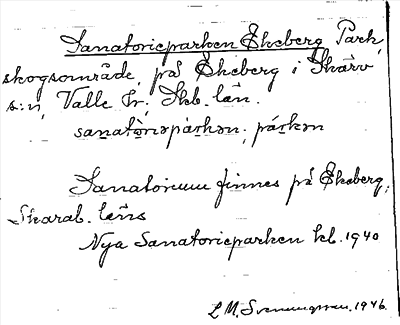 Sanatorieparken Ekeberg Park,
skogsområde, på Ekeberg i Skärv
s:n, Valle hr, Skb. län.
sanatòriəpàrkən, párkən
Sanatorium finnes på Ekeberg,
Skarab. läns
Nya Sanatorieparken kb. 1940
L.M. Svenungsson. 1946.